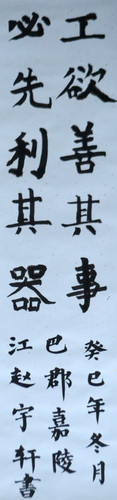 工欲善其事
必先利其器
癸巳年冬月
巴郡嘉陵
江赵宇轩書